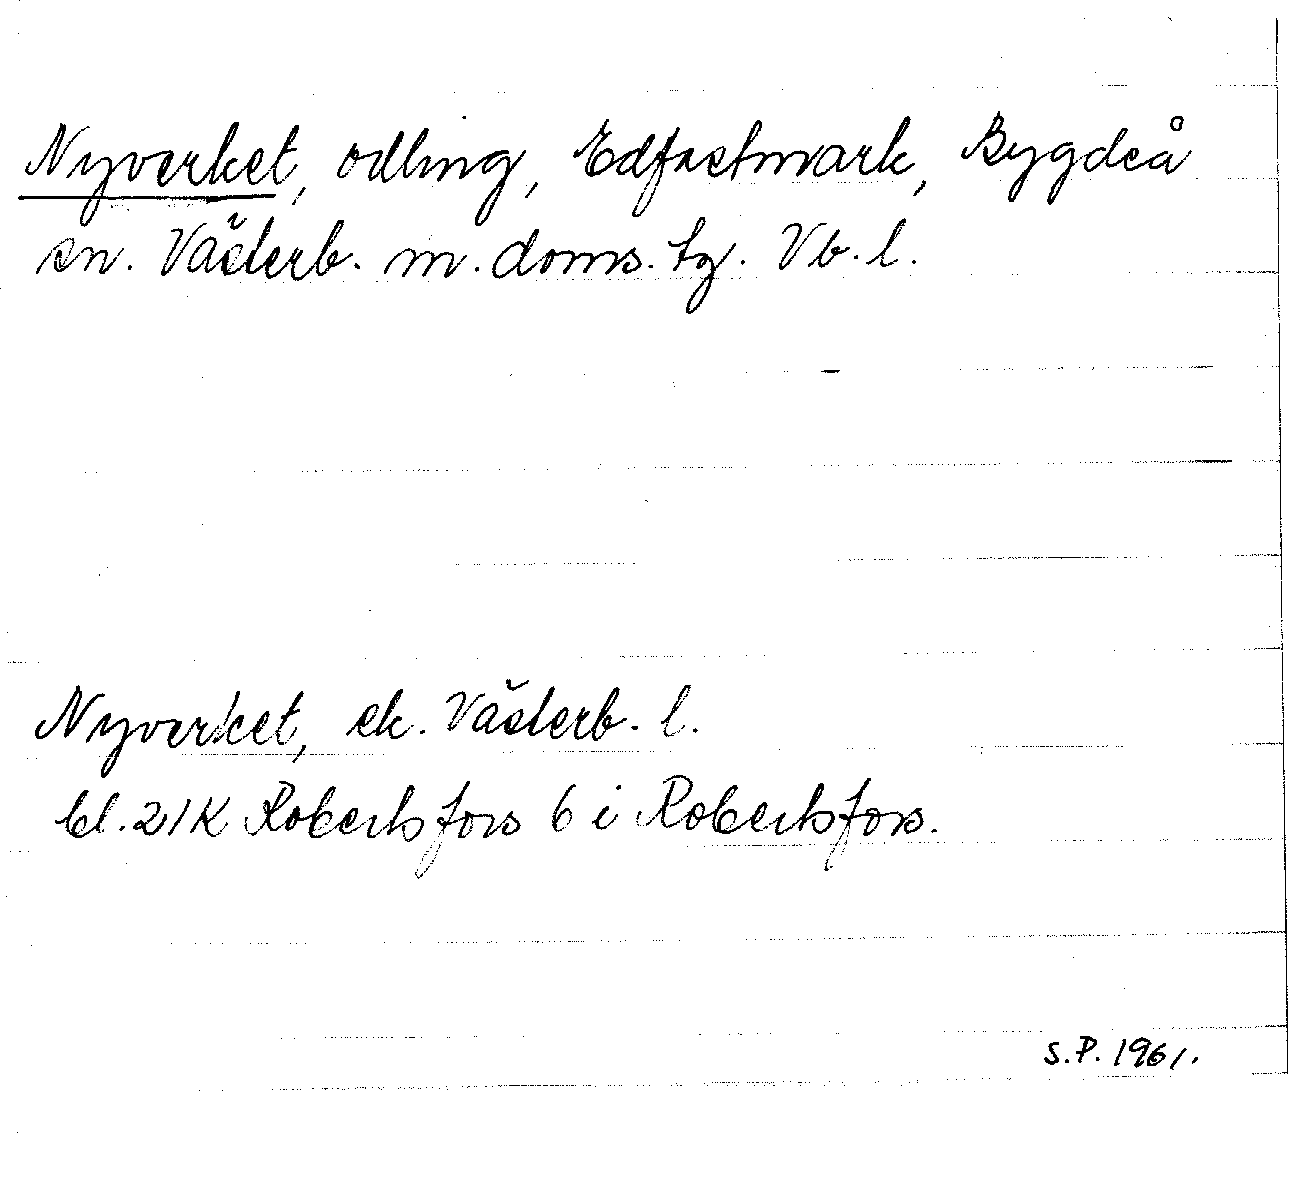 Nyverket, odling, Edfastmark, Bygdeå
sn. Västerb. m. doms. tg. Vb. l.
Nyverket, ek. Västerb. l.
bl. 21K Robertsfors 6 i Robertsfors.
S.P. 1961.